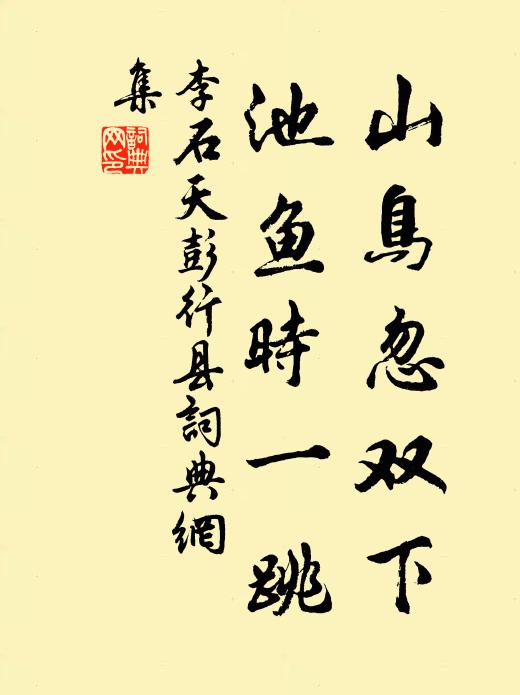 山鳥忽双下
池鱼時一跳
李石天彭行县詞典網
集
詞典網印